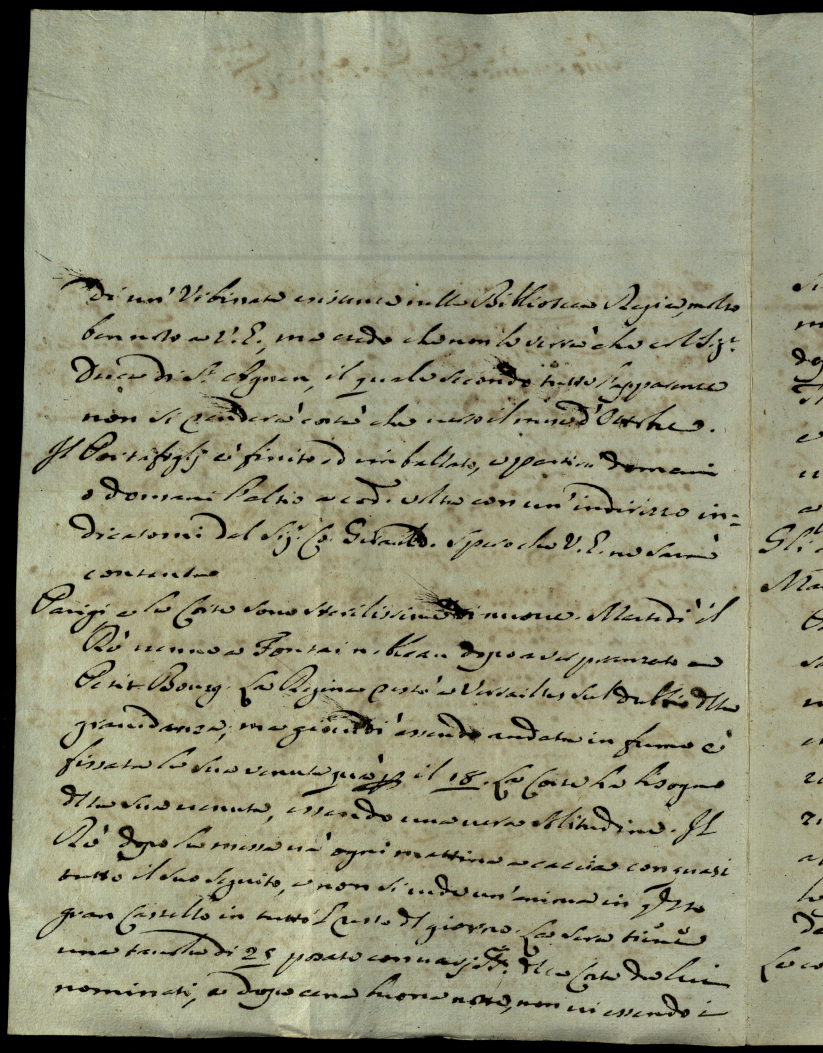 di un' Urbinate esistente nella Biblioteca Regia, molto
ben noto a V. E., ma credo che non lo verrà che col Sigr.
Duca di St. Agnan, il quale secondo tutte l'apparenze
non si renderà costà che verso il mese d'Ottobre.
Il Portafoglj è finito ed imballato, e partirà domani
o domani l'altro a cod. volta con un' indirizzo in=
dicatomi dal Sigr. Co. Giraud. Spero che V. E. ne sarà
contenta
Parigi e la Corte sono sterilissime di nuove. Martedì il
Rè venne a Fontainebleau dopo aver pranzato a
Petit-Bourg. La Regina restò a Versailles sul dubbio della
gravidanza; ma giovedì essendo andata in fumo è
fissata la sua venuta quà il 18. La Corte ha bisogno
della sua venuta, essendo una vera solitudine. Il
Rè dopo la messa và ogni mattina a caccia con quasi
tutto il suo seguito, e non si vede un' anima in questo
gran Castello in tutto il resto del giorno. La sera tiene
una tavola di 25 posate con varj della Corte da lui
nominati, e dopo cena buona notte, non vi essendo i